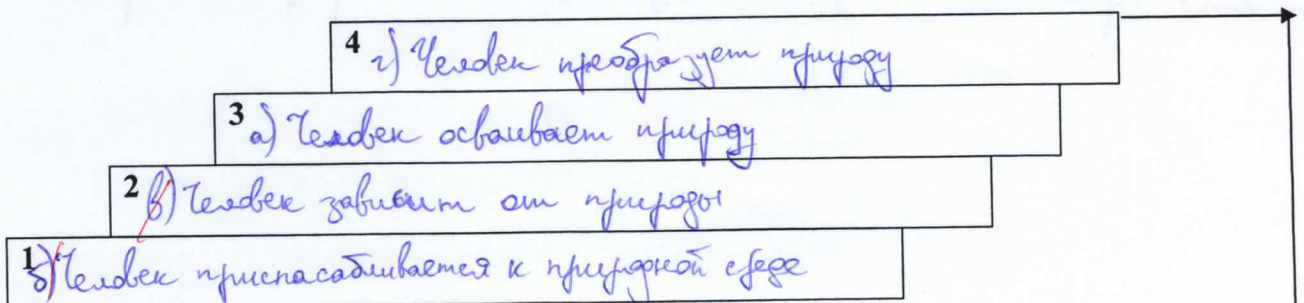 4 г) Человек преобразует природу
3 а) Человек осваивает природу
2 в) Человек зависит от природы
1 б) Человек приспасабливается к природной среде